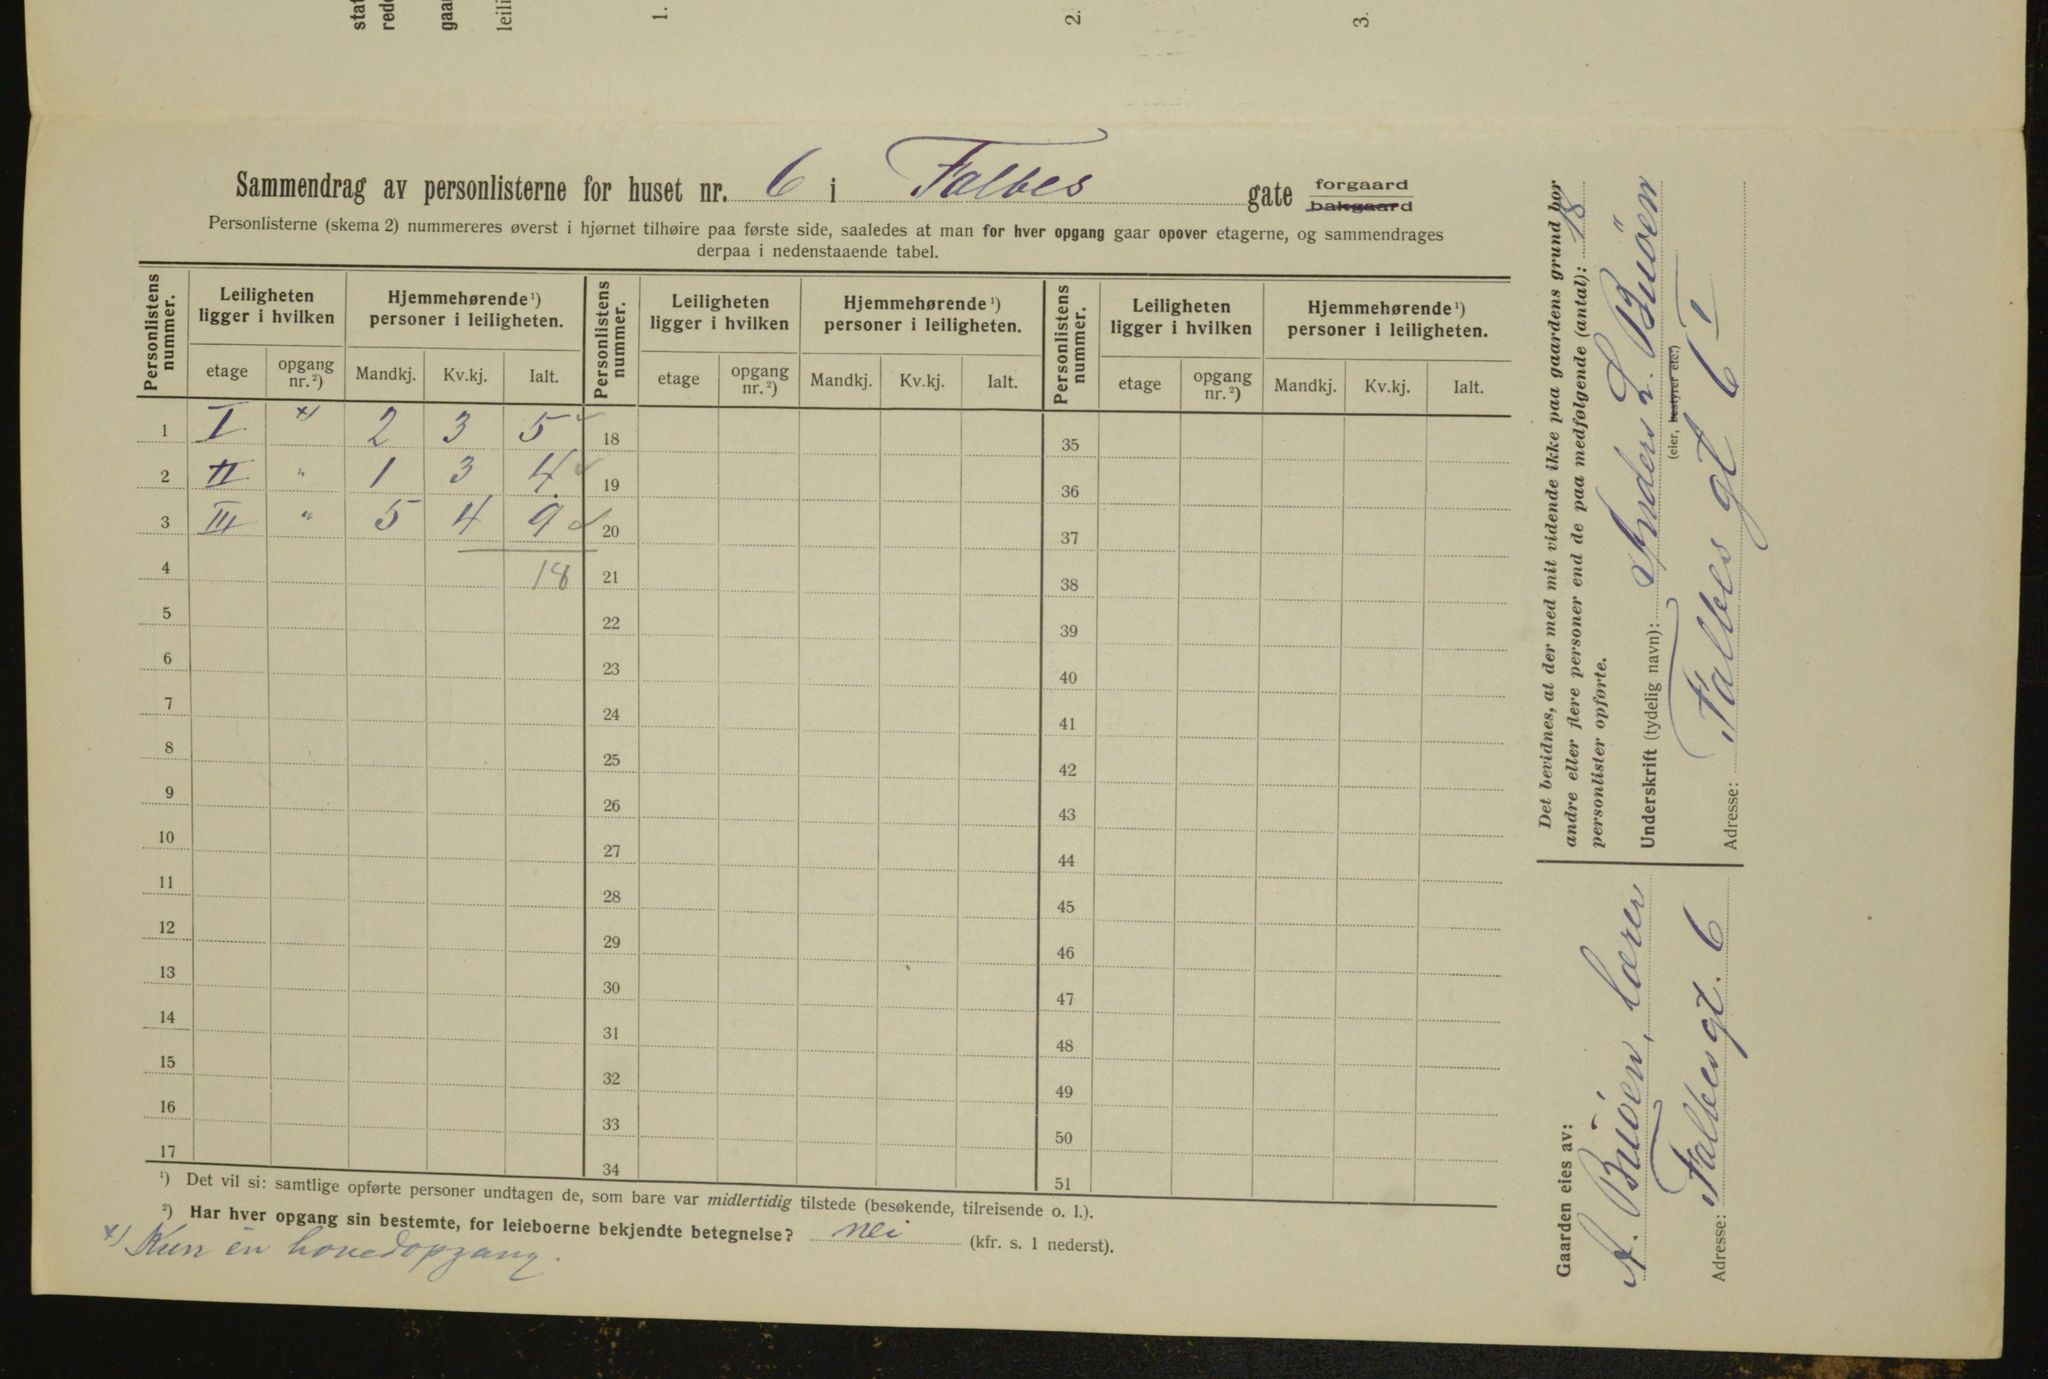 1.
2.
3.
Sammendrag av personlisterne for huset nr. 6 i Falbes gate forgaard bakgaard
Personlisterne (skema 2) nummereres øverst i hjørnet tilhøire paa første side, saaledes at man for hver opgang gaar opover etagerne, og sammendrages
derpaa i nedenstaaende tabel.
Personlistens nummer. Leiligheten ligger i hvilken Hjemmehørende ¹) personer i leiligheten. Personlistens nummer. Leiligheten ligger i hvilken Hjemmehørende ¹) personer i leiligheten. Personlistens nummer. Leiligheten ligger i hvilken Hjemmehørende ¹) personer i leiligheten.
etage opgang nr. ²) Mandkj. Kv.kj. Ialt. etage opgang nr. ²) Mandkj. Kv.kj. Ialt. etage opgang nr. ²) Mandkj. Kv.kj. Ialt.
1 I x) 2 3 5 18 35
2 II " 1 3 4 19 36
3 III " 5 4 9 20 37
4 18 21 38
5 22 39
6 23 40
7 24 41
8 25 42
9 26 43
10 27 44
11 28 45
12 29 46
13 30 47
14 31 48
15 32 49
16 33 50
17 34 51
¹) Det vil si: samtlige opførte personer undtagen de, som bare var midlertidig tilstede (besøkende, tilreisende o. l.).
²) Har hver opgang sin bestemte, for leieboerne bekjendte betegnelse? nei (kfr. s. 1 nederst).
x) Kun én hovedopgang.
Det bevidnes, at der med mit vidende ikke paa gaardens grund bor
andre eller flere personer end de paa medfølgende (antal): 18
personlister opførte.
Underskrift (tydelig navn): Anders L. Buöen
(eier, bestyrer etc.)
Adresse: Falbes gt 6 I
Gaarden eies av:
A. Buöen, lærer
Adresse: Falbes gt. 6